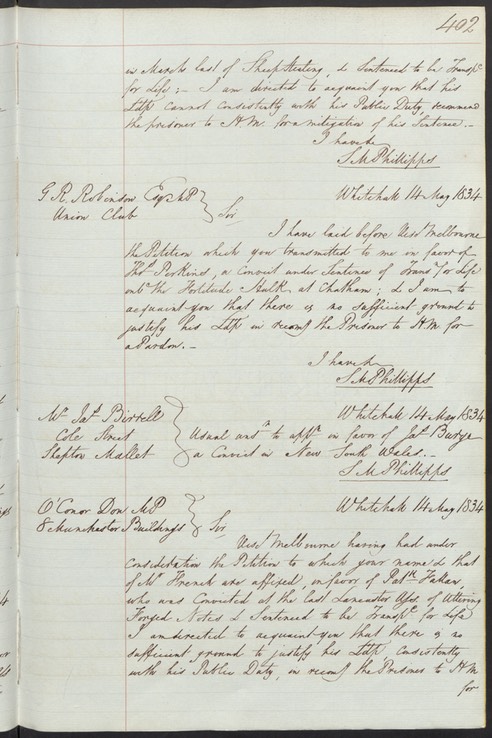 402
in March last of Sheep Stealing, & Sentenced to be Transp.d
for Life; - I am directed to acquaint you that his
Ldp cannot consistently with his Public Duty, recommend
the prisoner to H.M. for a mitigation of his Sentence. -
I have &c
S M Phillipps
G. R. Robinson Esq MP
Union Club
Whitehall 14 May 1834
Sir
I have laid before Visct Melbourne
the Petition which you transmitted to me in favor of
Thos Perkins, a Convict under Sentence of Trans.n for Life
on bd the Fortitude Hulk, at Chatham; & I am to
acquaint you that there is no sufficient ground to
justify his Ldp in recomg the Prisoner to H.M. for
a Pardon. -
I have &c
S M Phillipps
Mr Jas Birrell
Cole Street
Shepton Mallet
Whitehall 14 May 1834
Usual ansr to appn in favor of Jas
a Convict in New South Wales. -
S. M Phillipps
O'Conor Don MP
8 Manchester Buildings
Whitehall 14 May 1834
Sir,
Visct Melbourne having had under
consideration the Petition to which your name & that
of Mr French are affixed, in favor of Patk
who was Convicted at the last Lancaster Asss. of Uttering
Forged Notes & Sentenced to be Transp.d for Life
I am directed to acquaint you that there is no
sufficient ground to justify his Ldp, consistently
with his Public Duty, in recomg the Prisoner to H M
for